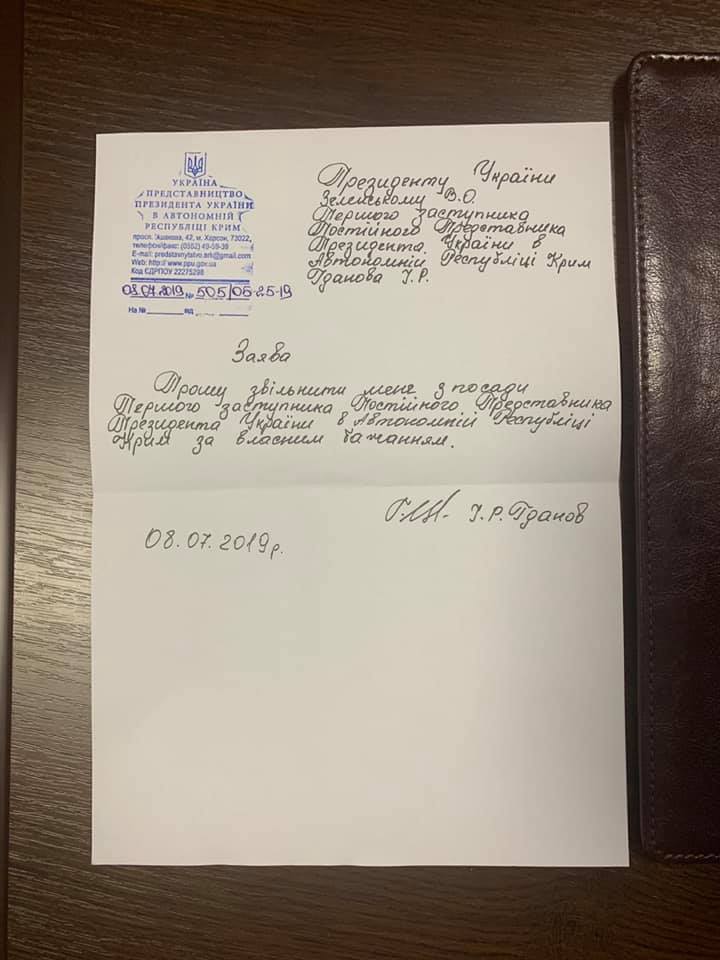 УКРАЇНА
ПРЕДСТАВНИЦТВО
ПРЕЗИДЕНТА УКРАЇНИ
В АВТОНОМНІЙ
РЕСПУБЛІЦІ КРИМ
просп. Ушакова, 42, м. Херсон, 73022,
телефон/факс: (0552) 49-59-39
E-mail: predstavnytstvo.ark@gmail.com
Web: http://www.ppu.gov.ua
Код ЄДРПОУ 22275298
09.07.2019 № 505/06-25-19
На №______ від ______
Президенту України
Зеленському В.О.
Першого заступника
Постійного Представника
Президента України в
Автономній Республіці Крим
Пданова І.Р.
Заява
Прошу звільнити мене з посади
Першого заступника Постійного Представника
Президента України в Автономній Республіці
Крим за власним бажанням.
І.Р. Пданов
08.07.2019р.